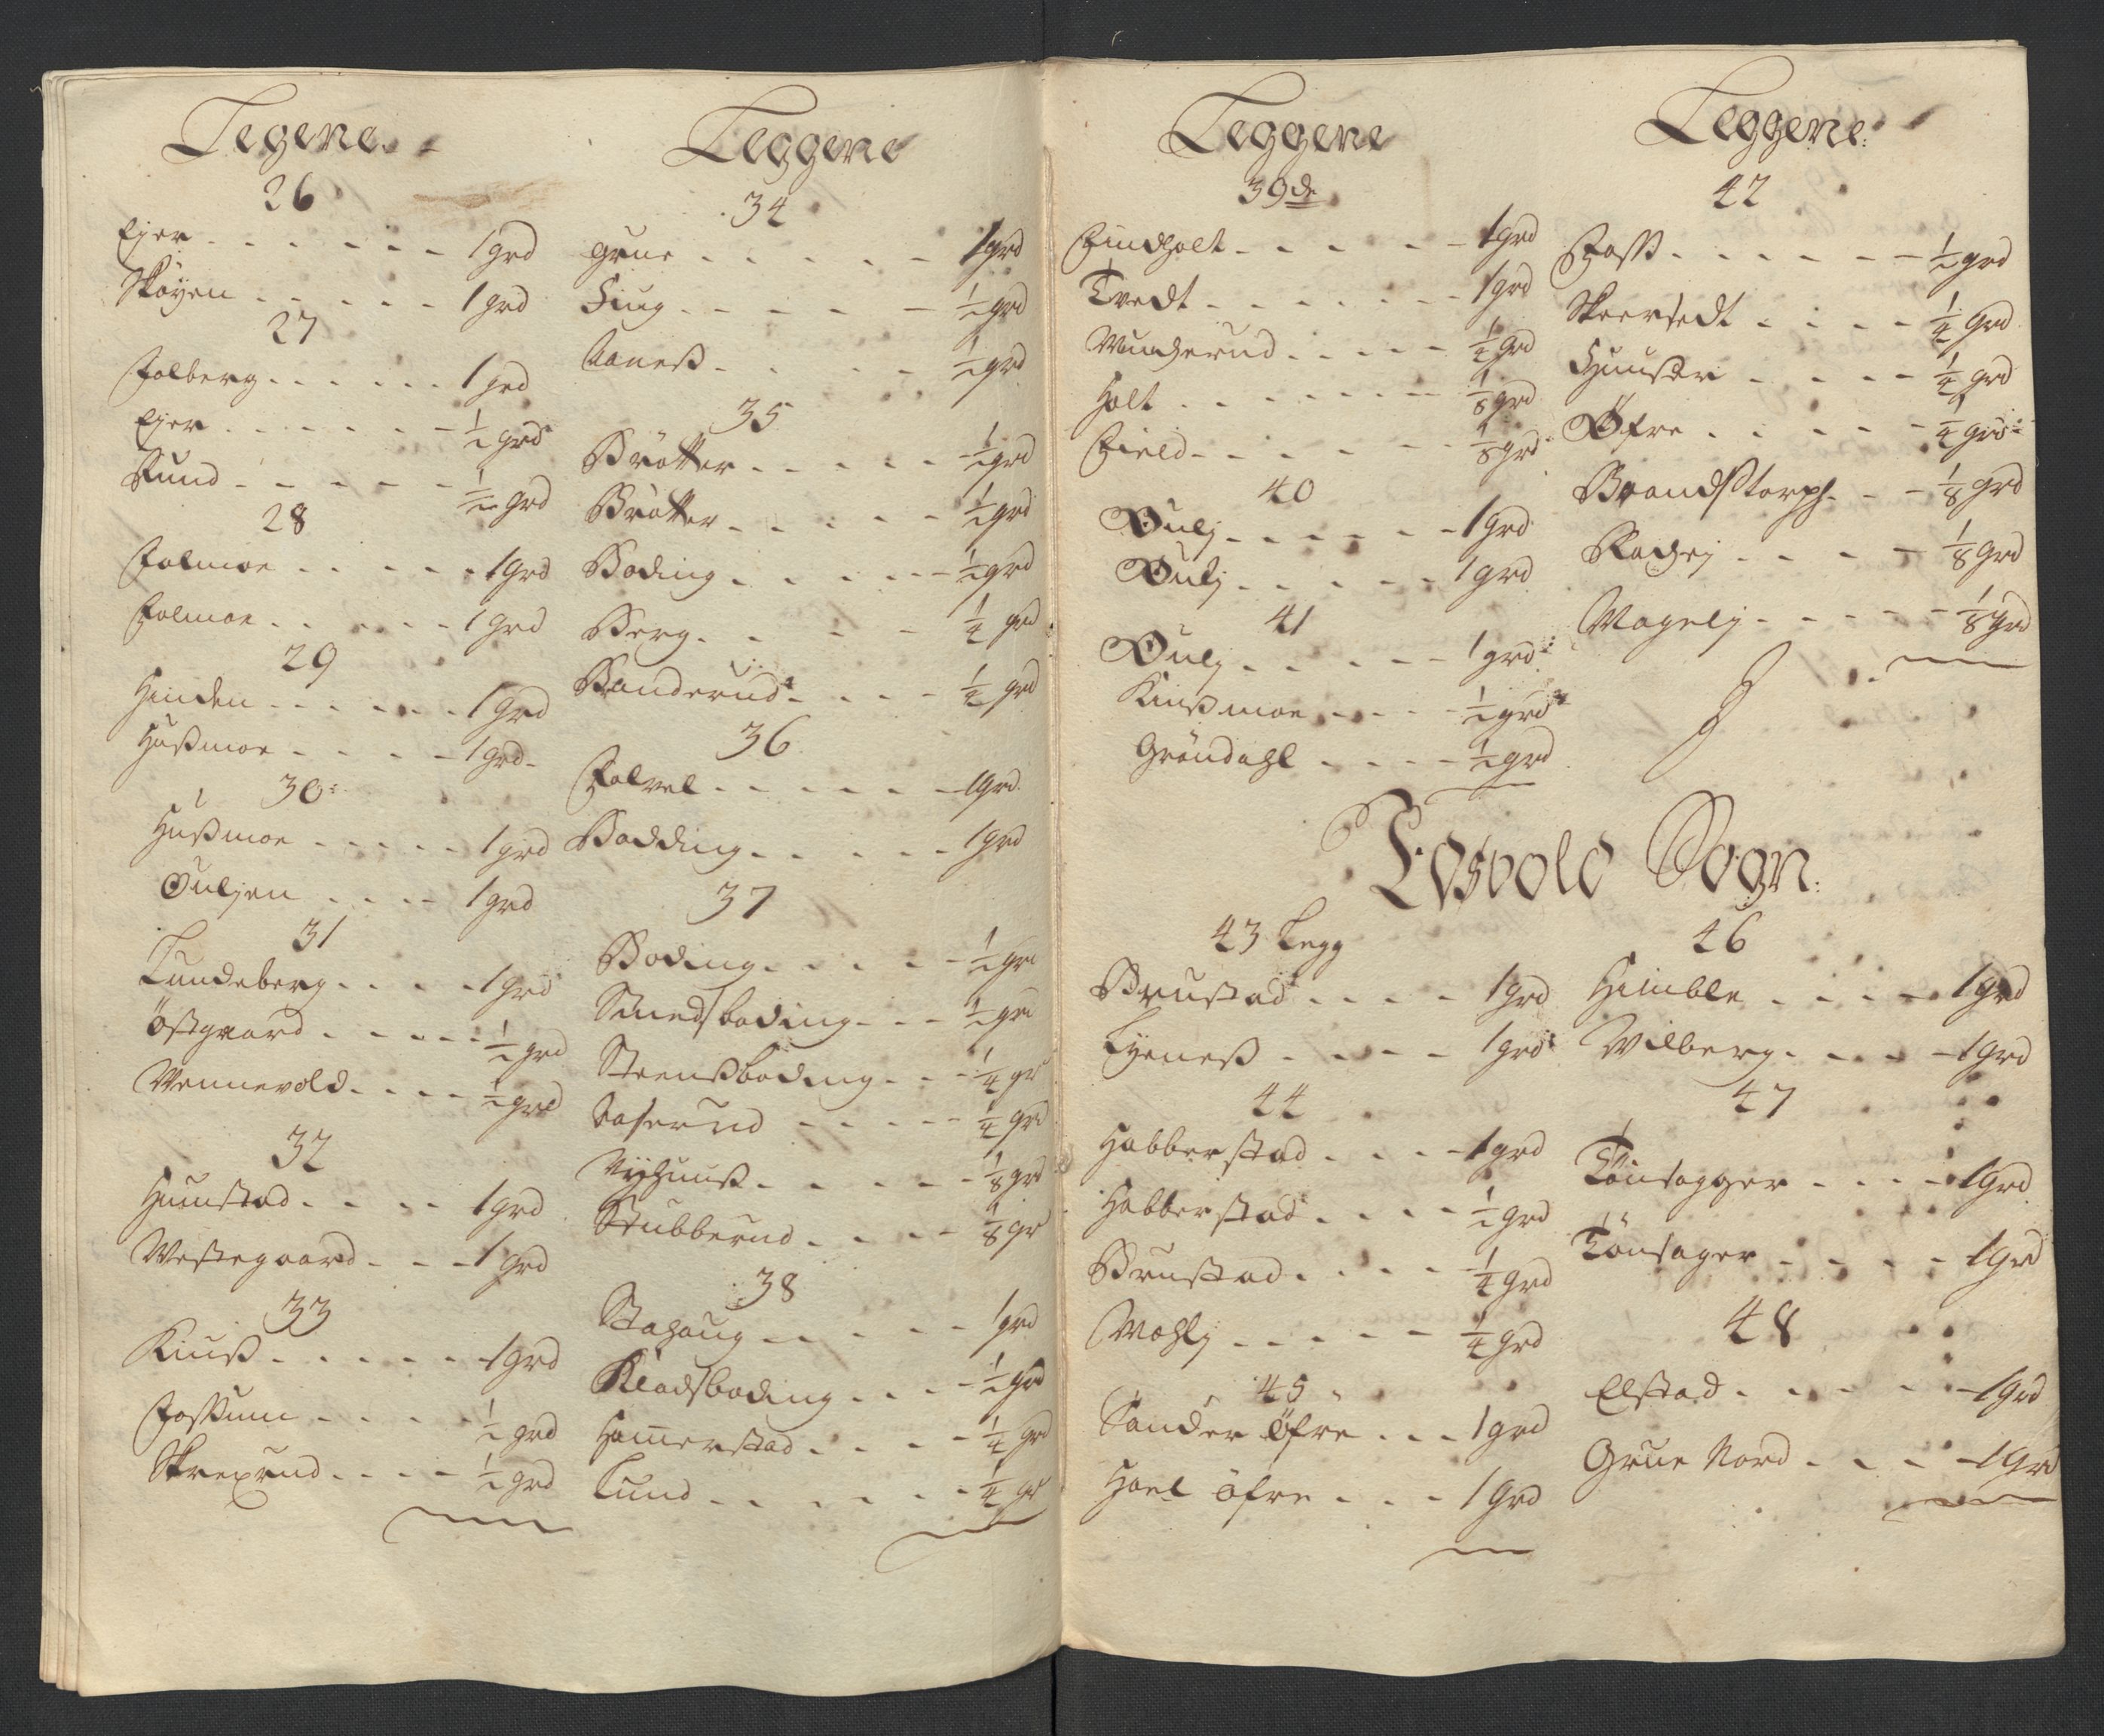 Legene
26
Ejer - - - - - - 1 grd
Skøyen - - - - - 1 grd
27
Folberg - - - - - - 1 grd
Ejer - - - - - - ½ grd
Rund - - - - - ½ grd
28
Folmoe - - - - - 1 grd
Folmoe - - - - - 1 grd
29
Hinden - - - - - 1 grd
Hußmoe - - - - 1 grd
30
Hußmoe - - - - - 1 grd
Ouljen - - - - 1 grd
31
Lundeberg - - - - 1 grd
Østgaard - - - - - ½ grd
Vennevold - - - - ½ grd
32
Huunstad - - - - 1 grd
Westegaard - - - 1 grd
33
Kiuß - - - - - 1 grd
Foßum - - - - ½ grd
Skreprud - - - - ½ grd
Leggene
34
grue - - - - - 1 grd
Fiug - - - - - ½ grd
Aaneß - - - - - ½ grd
35
Brøtter - - - - - ½ grd
Brøtter - - - - - ½ grd
Boding - - - - - ½ grd
Berg - - - - - ¼ grd
Banderud - - - - ¼ grd
36
Folvel - - - - - - 1 grd
Bodding - - - - - 1 grd
37
Boding - - - - - ½ grd
Smedsboding - - - ½ grd
Steenßboding - - - ¼ gr
Aaserud - - - - - ¼ grd
Nyhuuß - - - - - ⅛ grd
Stubberud - - - - ⅛ gr
38
Stahaug - - - - - 1 grd
Kladsboding - - - - ½ grd
Hamerstad - - - - ¼ grd
Lund - - - - - - ¼ gr
Leggene
39de
Findholt - - - - - 1 grd
Tvedt - - - - - - - 1 grd
Mungerud - - - - - ¼ grd
Holt - - - - - - - ⅛ grd
Field - - - - - - ⅛ grd
40
Oulj - - - - - - 1 grd
Oulj - - - - - 1 grd
41
Oulj - - - - - 1 grd
Kinßmoe - - - - ½ grd
Grøndahl - - - - ½ grd
Leggene
42
Foss - - - - - - ½ grd
Skersedt - - - - ¼ grd
Huuser - - - - - ¼ grd
Øfre - - - - - ¼ grd
Brandstorph - - - ⅛ grd
Rodhej - - - - - ⅛ grd
Mognelj - - - - - ⅛ grd
Edsvold Sogn
43 Legg
Brustad - - - - 1 grd
Tyeneß - - - - 1 grd
44
Habberstad - - - - 1 grd
Habberstad - - - - ½ grd
Brustad - - - - ¼ grd
Mohlj - - - - - ¼ grd
45
Sander Øfre - - - 1 grd
Hoel øfre - - - 1 grd
46
Himble - - - - 1 grd
Wilberg - - - - - 1 grd
47
Tønsagger - - - - 1 grd
Tønsager - - - - - 1 grd
48
Elstad - - - - - 1 grd
Grue Nord - - - - 1 grd